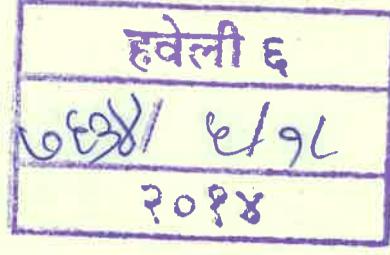 हवेली ६
७६३४/ ५/१८
२०१४